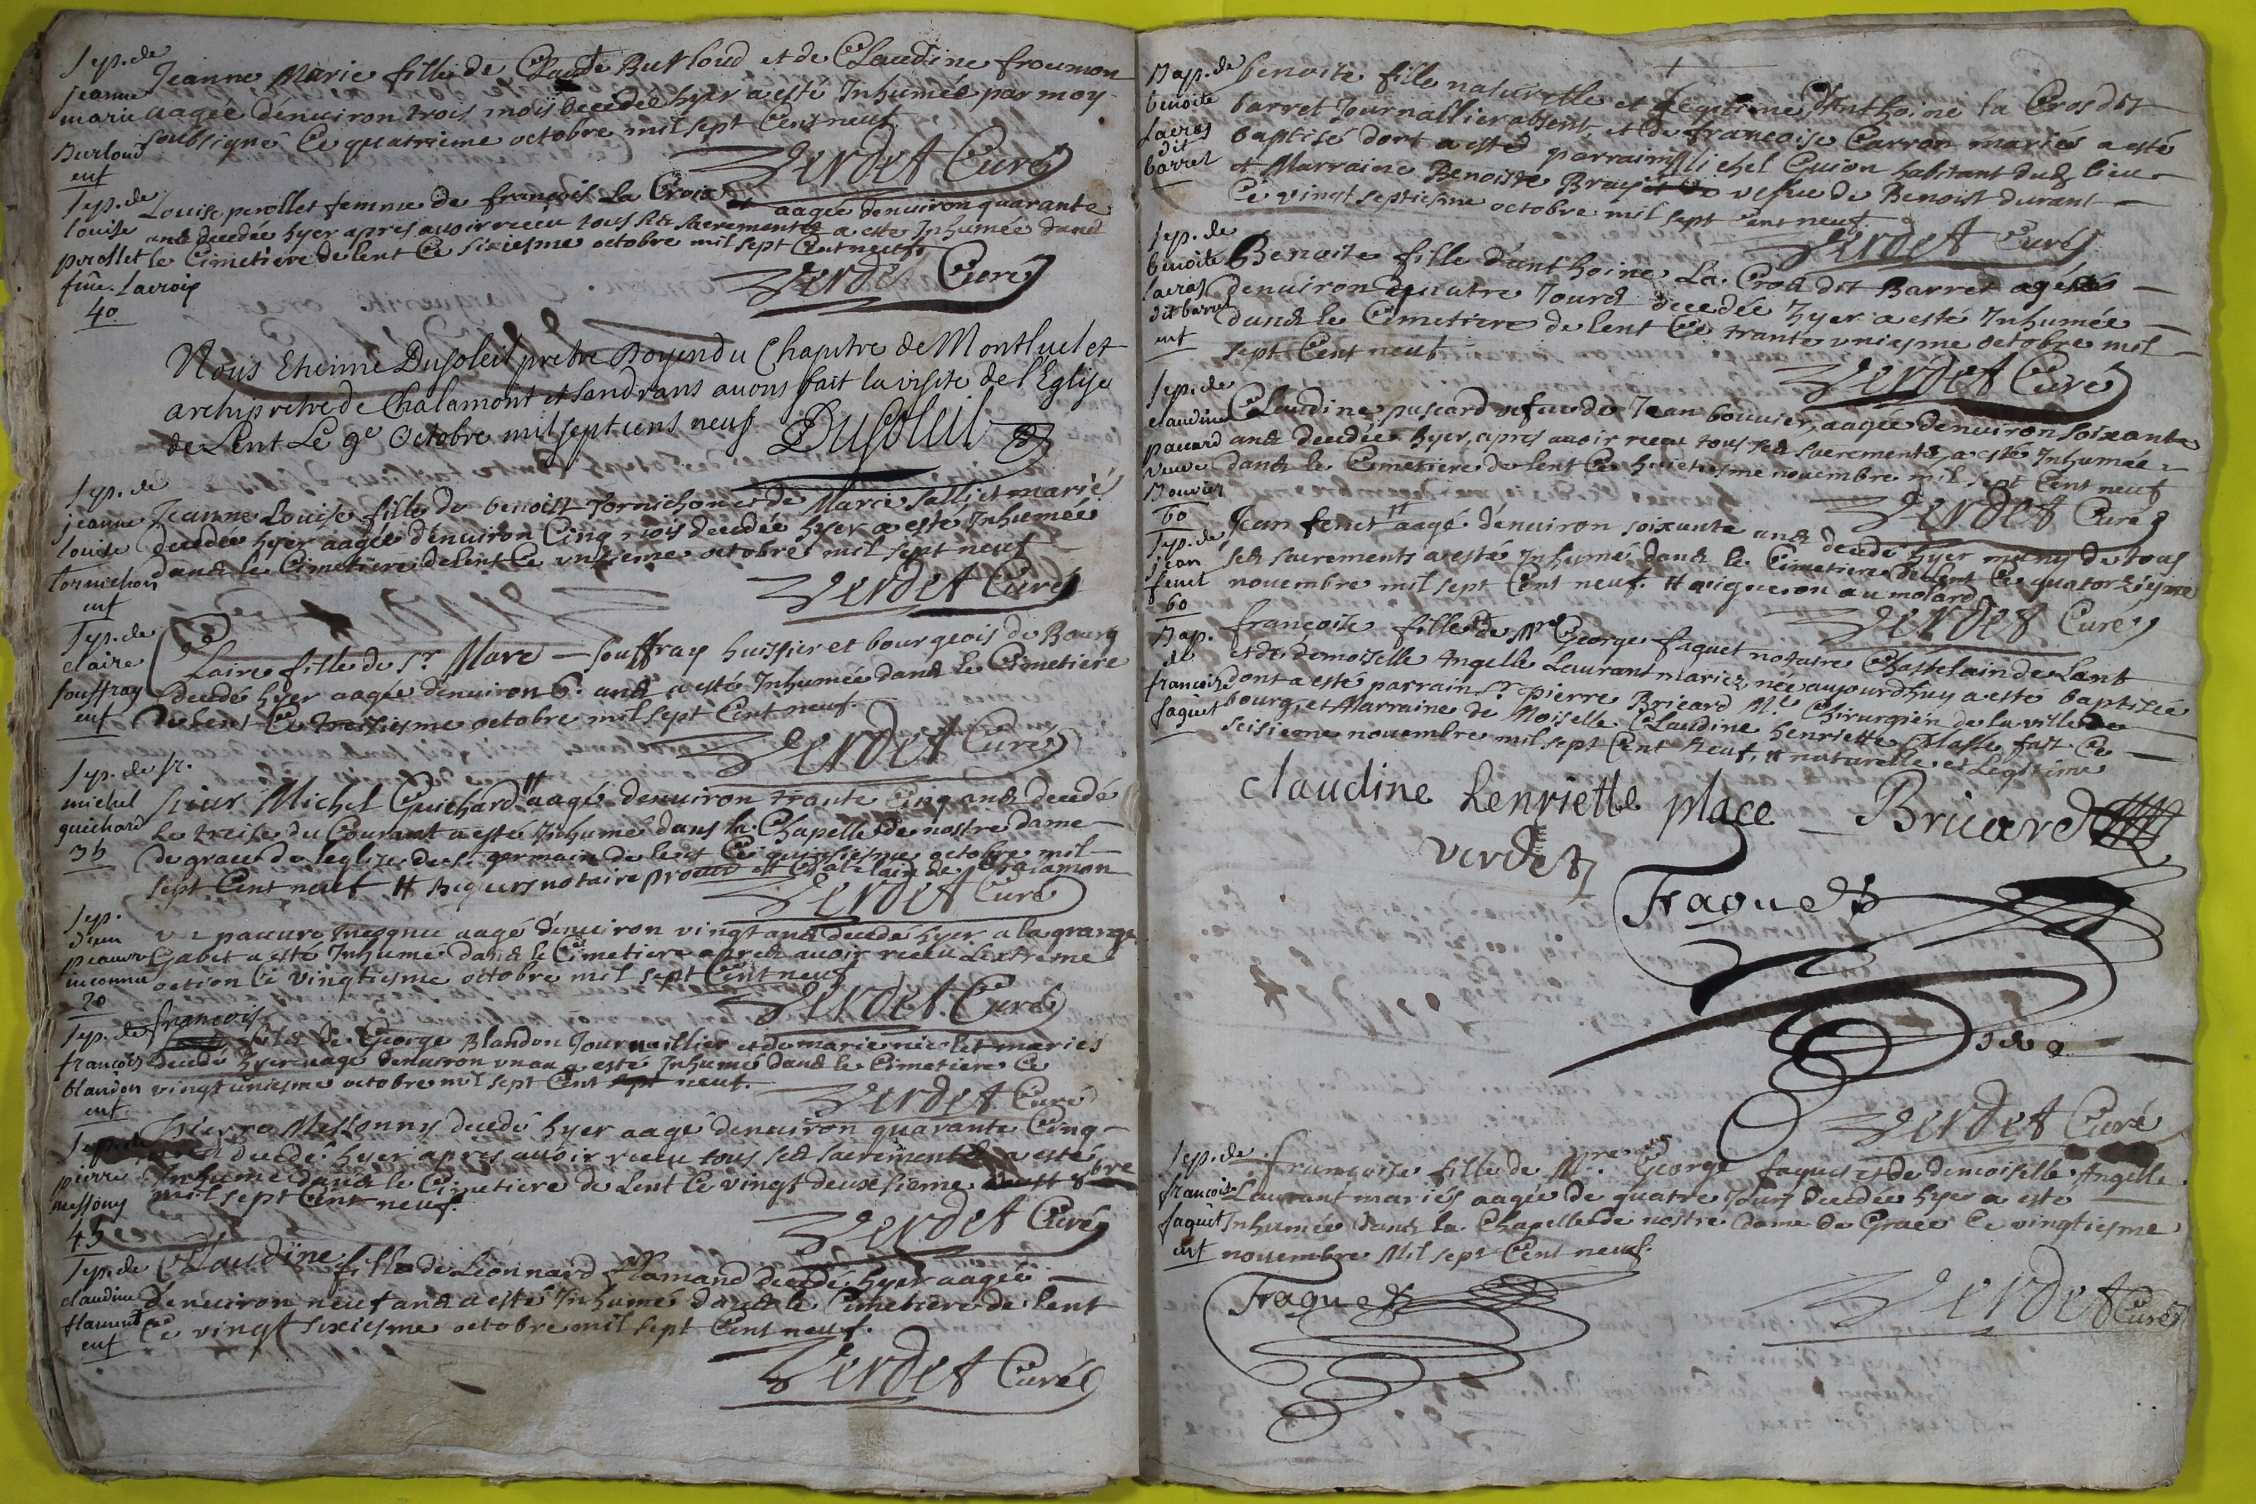 Sep. de
Jeanne
marie
Burloud
enf
Jeanne Marie fille de Claude Burloud et de Claudine froumon
aagée d'enuiron trois mois decedée hyer a esté Inhumée par moy
soubsigné Ce quatrieme octobre mil sept Cent neuf
Verdet Curé
Sep. de
louise
perollet
fme. Lacroix
40
Louise perollet femme de françois La Croix aagée denuiron quarante
ans decedée hyer apres auoir receu tous ses sacrements a este Inhumée dans
le Cimetiere de lent Ce sixiesme octobre mil sept Cent neuf
Verdet Curé
Nous Etienne Dusoleil pretre Doyen du Chapitre de Montluel et
archipretre de Chalamont et Sandrans auons fait la visite de l'Eglise
de Lent Le 9e Octobre mil sept cens neuf Dusoleil
Sep. de
jeanne
louise
tornichon
enf
Jeanne Louise fille de benoist tornichon et de Marie mariés
decedée hyer aagée d'enuiron Cinq mois decedée hyer a este Inhumée
dans le Cimetiere de lent Ce unzieme octobre mil sept neuf
Verdet Curé
Sep. de
claire
souffray
enf
Claire fille de Sr Marc Souffray huissier et bourgeois de Bourg
decedé hyer aagée d'enuiron 6. ans a esté Inhumée dans le Cimetiere
de lent Ce treisiesme octobre mil sept Cent neuf.
Verdet Curé
Sep. de sr.
michel
guichard
35
Sieur Michel Guichard # aagé denuiron trante Cinq ans decedé
le treise du Courant a esté Inhumé dans la Chapelle de nostre dame
de grace de leglize de st germain de lent Ce quinsiesme octobre mil
sept Cent neuf # notaire et Chatelain de Chalamon
Verdet Curé
Sep.
d'un
peauvre
inconnu
20
un pauure Incognu aagé denuiron vingt ans decedé hyer a la grange
Gabet a esté Inhumé dans le Cimetiere apres auoir receu Lextreme
oction Ce vingtiesme octobre mil sept Cent neuf
Verdet Curé
Sep. de
francois
blandon
enf
francois
fils de George Blandon Journallier et de marie nicolet mariés
decedé hyer aagé denuiron un an a esté Inhumé dans le Cimetiere Ce
vingt uniesme octobre mil sept Cent neuf.
Verdet Curé
Sep. de
pierre
messony
45
Pierre Messonny decedé hyer aagé denuiron quarante Cinq
decedé hyer apres auoir receu tous ses sacrements a esté
Inhumé dans le Cimetiere de Lent Ce vingt deuxsieme 8bre
mil sept Cent neuf.
Verdet Curé
Sep. de
claudine
flamand
enf
Claudine fille de Léonnard flamand decedé hyer aagée
denuiron neuf ans a esté Inhumé dans le Cimetiere de lent
Ce vingt sixiesme octobre mil sept Cent neuf.
Verdet Curé
Bap. de
benoite
lacros
dit
barret
benoite fille naturelle et Legitime d'Anthoine la Cros dit
barret Journallier absent, et de francoise Carron mariés a esté
baptisé dont a esté parrain Michel Guion habitant dud lieu
et Marraine Benoiste Bray vefue de Benoist durant
Ce vingt septiesme octobre mil sept Cent neuf
Verdet Curé
Sep. de
benoite
lacros
dit barret
enf
Benoite fille d'anthoine La Cros dit Barret agée
denuiron quatre Jours decedée hyer a esté Inhumée
dans le Cimetiere de lent Ce trante uniesme octobre mil
sept Cent neuf
Verdet Curé
Sep. de
claudine
pacard
veuve
Bouvier
60
Claudine pascard vefue de Jean bouuier, aagée denuiron soixante
ans decedée hyer, apres auoir receu tous ses sacrements, a esté Inhumée
dans le Cimetiere de lent Ce huictiesme nouembre mil sept Cent neuf
Verdet Curé
Sep. de
jean
feuct
60
Jean feuct # aagé d'enuiron soixante ans decedé hyer muny de tous
ses sacrements a esté Inhumé dans le Cimetiere de lent Ce quatorziesme
nouembre mil sept Cent neuf. # uigneron au molard
Verdet Curé
Bap.
de
francoise
faquet
francoise fille de Mre George faquet notaire Chastelain de Lant
et de demoiselle Angelle Laurant mariez, née aujourdhuy a esté baptisée
dont a esté parrain Sr pierre Bricard Me Chirurgien de la ville de
bourg, et Marraine de Moiselle Claudine henriette Plasse, fait Ce
seisieme nouembre mil sept Cent neuf, # naturelle et Legitime
claudine henriette place Bricard
verdet
Faquet
Verdet Curé
Sep. de
francoise
faquet
enf
francoise fille de Mre. George faquet et de demoiselle Angelle
Laurant mariés aagée de quatre Jours decedée hyer a este
Inhumée dans la Chapelle de nostre dame de Grace Ce vingtiesme
nouembre Mil sept Cent neuf.
Faquet
Verdet Curé